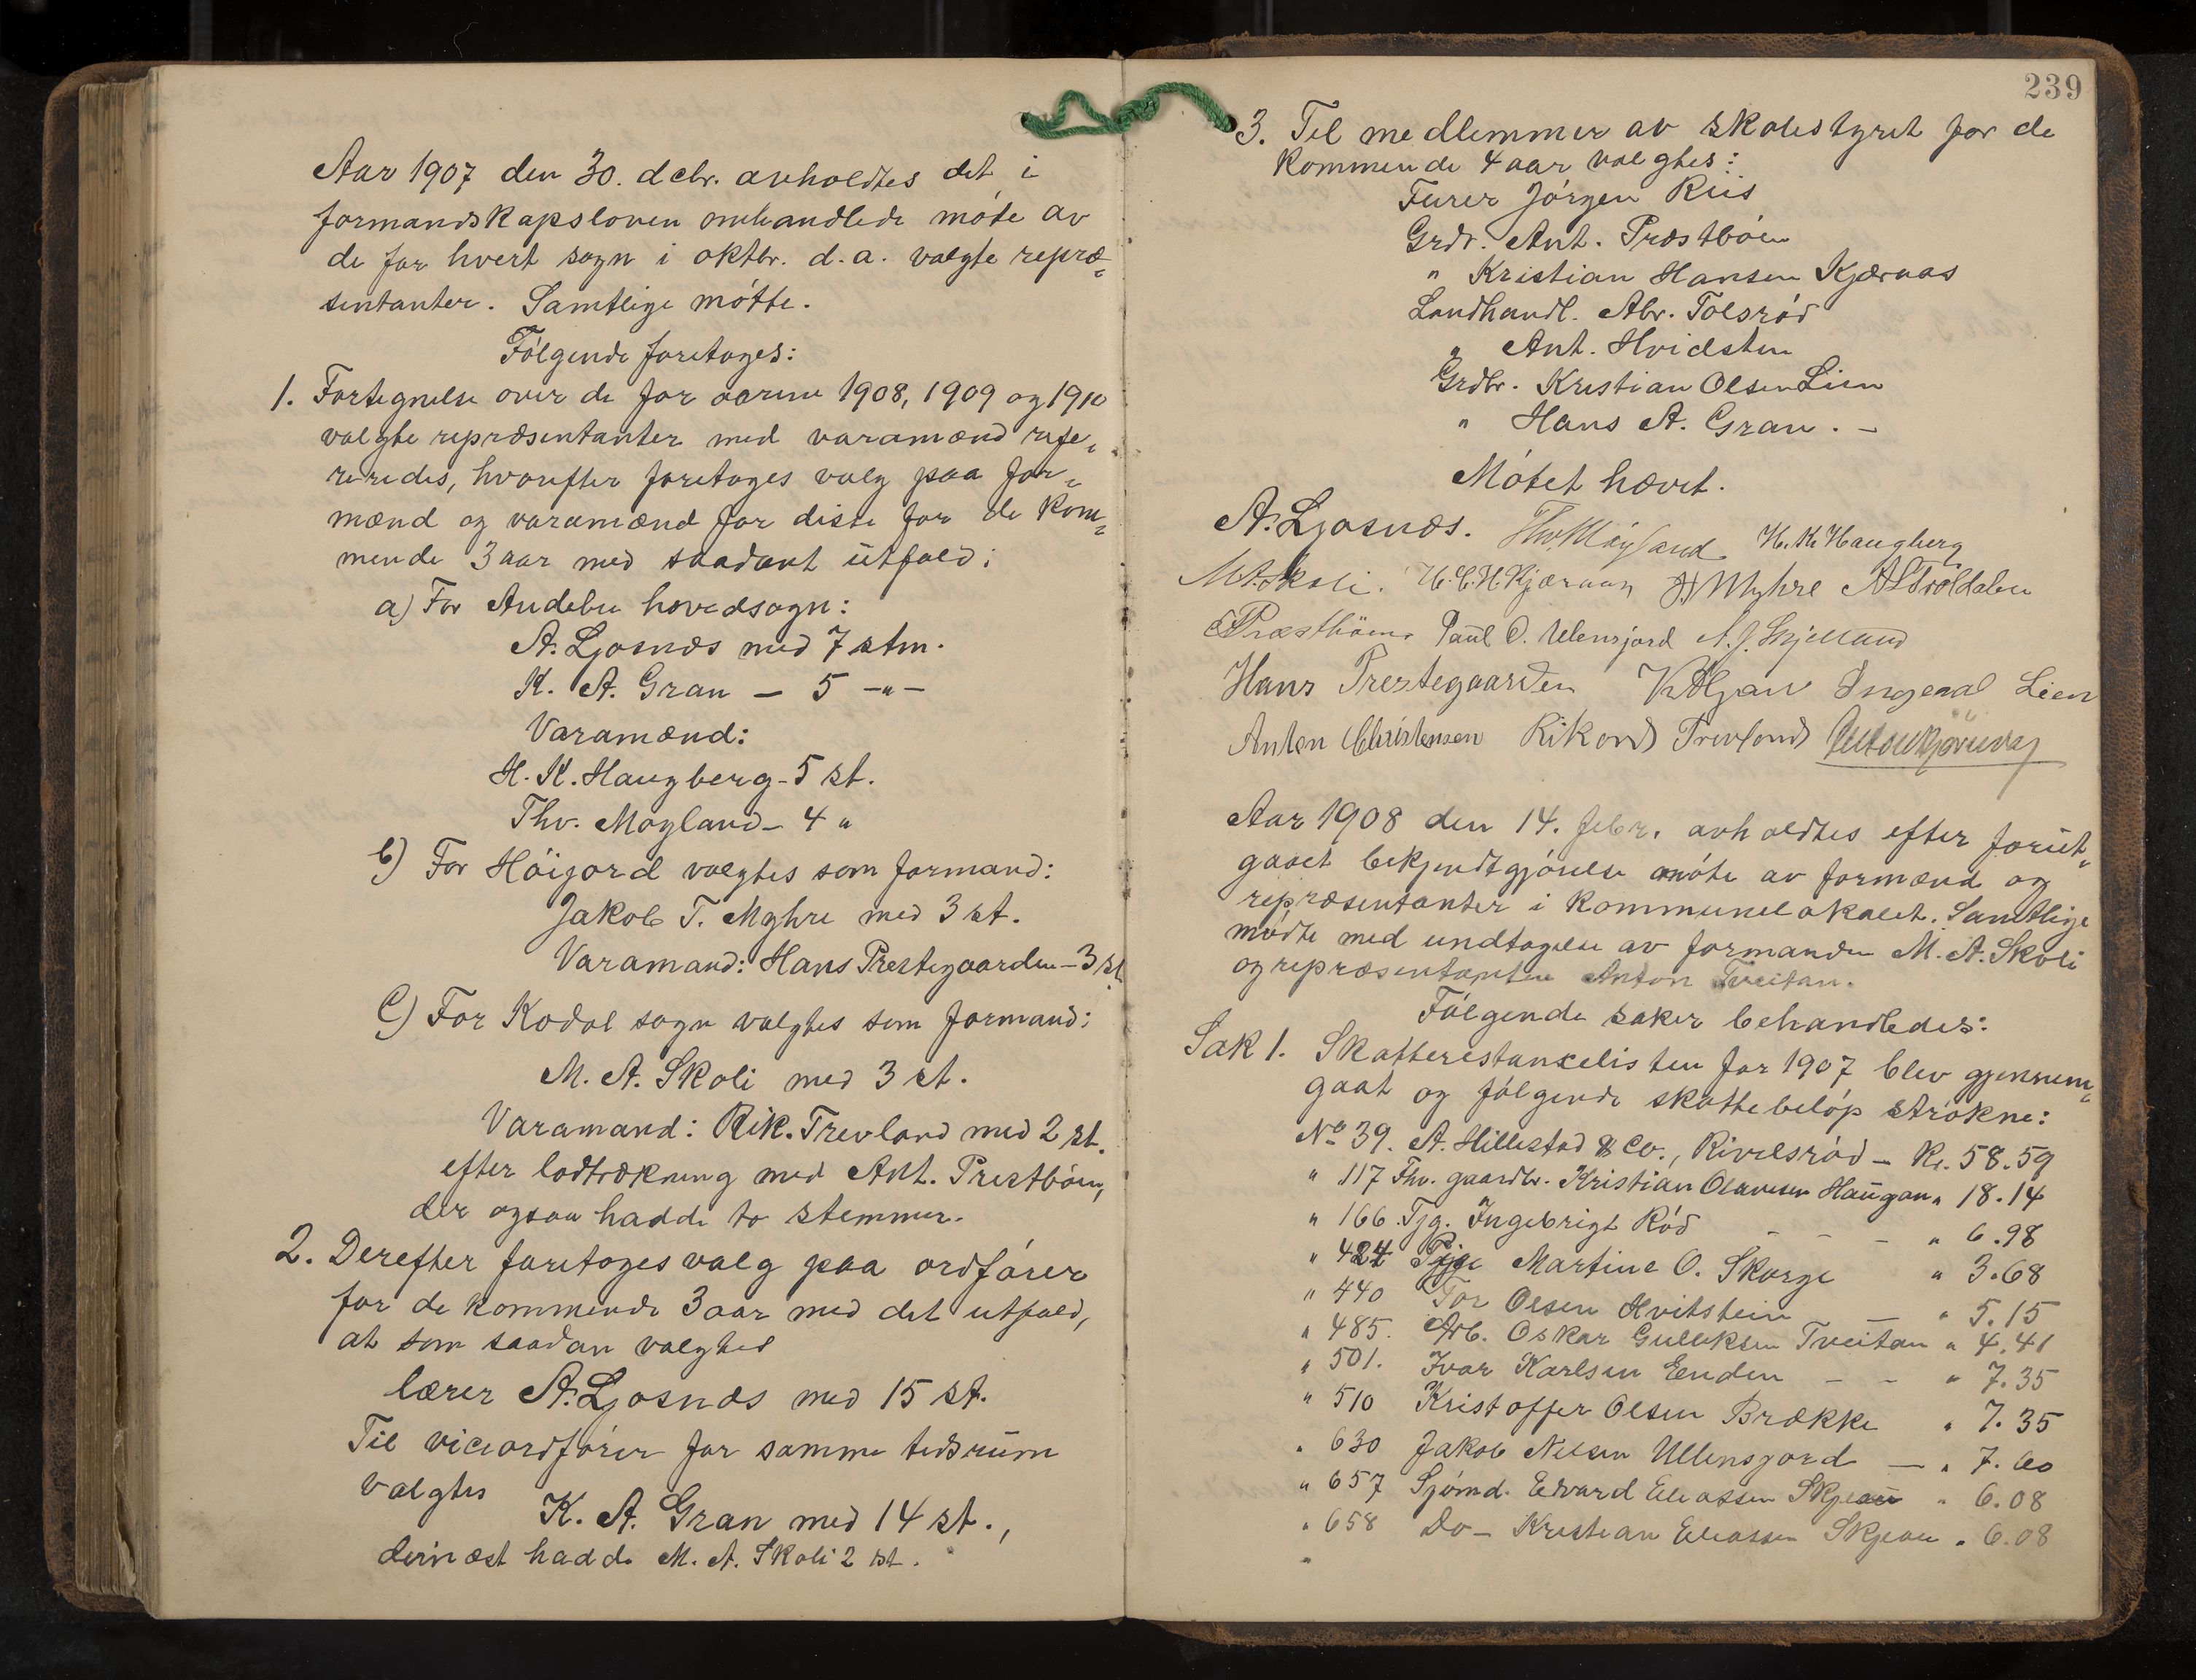 Aar 1907 den 30. debr. avholdtes det i
formandskapsloven omhandlede møte av
de for hvert sogn i oktbr. d. a. valgte repræ-
sentanter. Samtlige møtte.
Følgende foretoges:
1. Fortegnelse over de for aarene 1908, 1909 og 1910
valgte repræsentanter med varamænd refe-
reredes, hvorefter foretoges valg paa for-
mænd og varamænd for disse for de kom-
mende 3 aar med saadant utfald:
a) For Andebu hovedsogn:
A. Ljosnæs med 7 stm.
K. A. Gran — 5 —"—
Varamænd:
H. K. Haugberg - 5 st.
Thv. Møyland - 4 "
b) For Høigord valgtes som formand:
Jakob T. Myhre med 3 st.
Varamand: Hans Prestegaarden - 3 st.
C) For Kodal sogn valgtes som formand:
M. A. Skoli med 3 st.
Varamand: Rik. Trevland med 2 st.
efter lodtrækning med Ant. Prestbøen,
der ogsaa hadde to stemmer.
2. Derefter foretoges valg paa ordfører
for de kommende 3 aar med det utfald,
at som saadan valgtes
lærer A. Ljosnæs med 15 st.
Til viceordfører for samme tidsrum
valgtes
K. A. Gran med 14 st.,
dernæst hadde M. A. Skoli 2 st.
239
3. Til medlemmer av skolestyret for de
kommende 4 aar valgtes:
Furer Jørgen Riis
Grdr. Ant. Præstbøen
" Kristian Hansen Kjæraas
Landhandl. Abr. Tolsrød
" Ant. Hvidsten
Grdbr. Kristian Olsen Lien
" Hans A. Gran. —
Møtet hævet.
A. Ljosnæs. Thv. Møyland H. K. Haugberg
M A Skoli. H. C. H. Kjæraas J T Myhre A L Trolldalen
A Præstbøen Paul O. Ulensjord A. J. Skjelland
Hans Prestegaarden K A Gran Ingevald Lien
Anton Christensen Rikard Trevland
Aar 1908 den 14. febr. avholdtes efter forut-
gaaet bekjendtgjørelse møte av formænd og
repræsentanter i kommunelokalet. Samtlige
mødte med undtagelse av formanden M. A. Skoli
og repræsentanten Anton Tveitan.
Følgende saker behandledes:
Sak 1. Skatterestanselisten for 1907 blev gjennem-
gaat og følgende skattebeløp strøkne:
No 39. A. Hillestad & Co., Rivelsrød — Kr. 58.59
" 117 Fhv. gaardbr. Kristian Olavesen Haugan " 18.14
" 166 Tjg. Ingebrigt Rød - - - " 6.98
" 424 Pige Martine O. Skorge " 3.68
" 440 Tor Olsen Hvitstein — " 5.15
" 485. Arb. Oskar Gulliksen Tveitan " 4.41
" 501. Ivar Karlsen Enden - - " 7.35
" 510 Kristoffer Olsen Brække " 7.35
" 630 Jakob Nilsen Ullensjord — " 7.60
" 657 Sjømd. Edvard Eliassen Skjeau " 6.08
" 658 Do— Kristian Eliassen Skjeau " 6.08
"